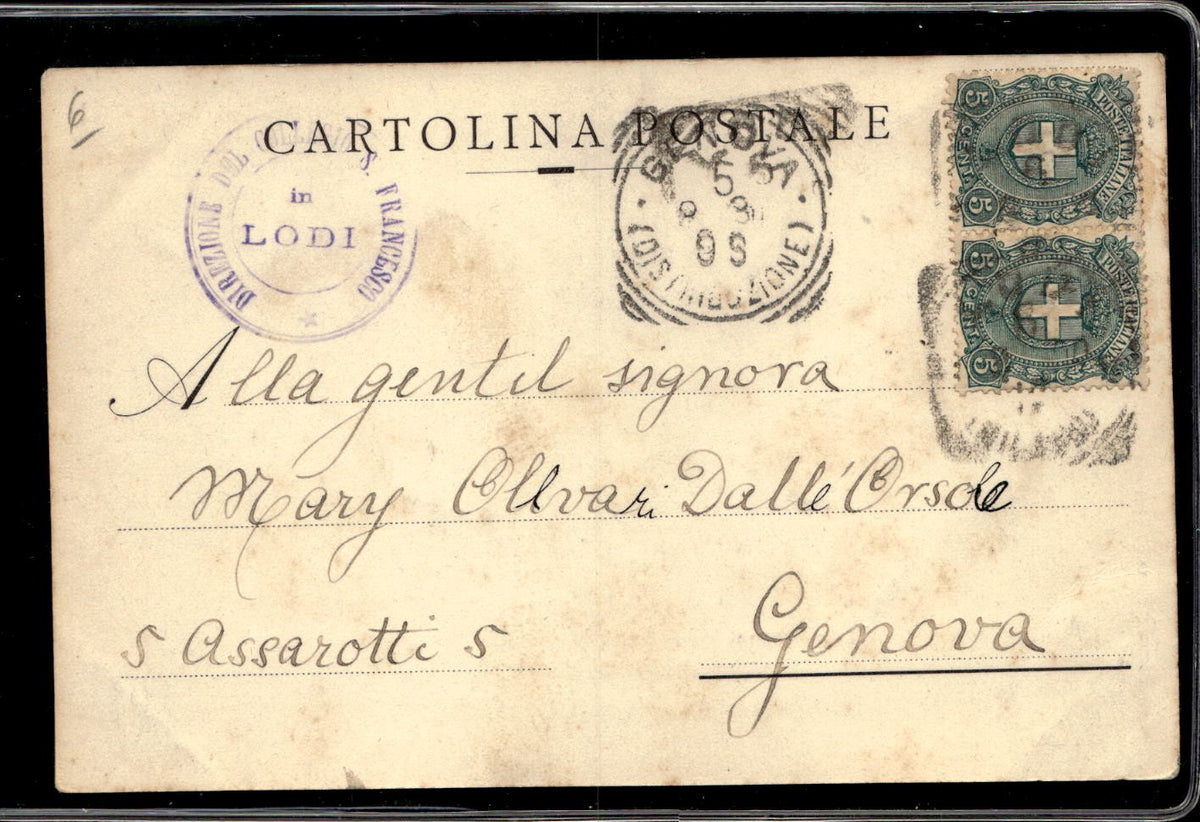 61
CARTOLINA POSTALE
DIREZIONE DEL S. FRANCESCO
in
LODI
GENOVA
5
8
98
(DISTRIBUZIONE)
5 CENT. 5
POSTE ITALIANE
5 CENT. 5
POSTE ITALIANE
Alla gentil signora
Mary Ollvari Dalle' Orso
5 Assarotti 5
Genova